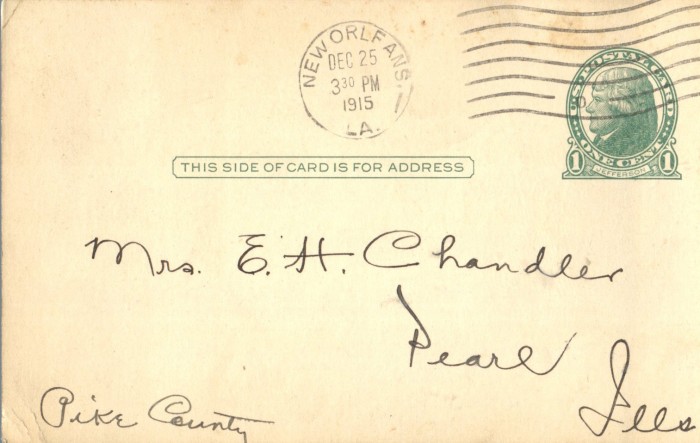 NEW ORLEANS,
DEC 25
3 30 PM
1915
LA.
U.S. POSTAL CARD
1 ONE CENT 1
JEFFERSON
THIS SIDE OF CARD IS FOR ADDRESS
Mrs. E. H. Chandler
Pearl
Ills
Pike County